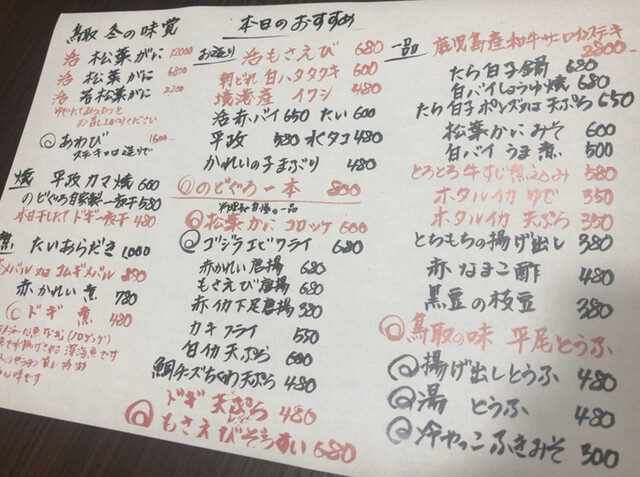 鳥取 冬の味覚
活 松葉がに 12000
活 松葉がに 6800
活 若松葉がに 2200
お召し上がりください
あわび 1600
ステーキ又は造りで
焼 平政カマ焼 600
のどぐろ自家製一夜干 580
本日干したドギ一夜干 480
たいあらだき 1000
メバル 又は コムギメバル 880
赤かれい煮 780
ドギ 煮 480
深海魚です
味です
本日のおすすめ
お造り 活もさえび 680
朝どれ 甘ハタタタキ 600
境港産 イワシ 480
活赤バイ 650 たい 600
平政 580 水タコ 480
かれいの子まぶり 480
のどぐろ一本 800
料理長自慢の一品
松葉かにコロッケ 600
ゴジラエビフライ 680
赤かれい唐揚 680
もさえび唐揚 680
赤イカ下足唐揚 380
カキフライ 550
白イカ天ぷら 600
鯛チーズちくわ天ぷら 480
ドギ 天ぷら 480
もさえびぞうすい 680
一品 鹿児島産和牛サーロインステーキ
2800
たら白子鍋 680
白バイしょうゆ焼 680
たら白子ポンズ又は天ぷら 650
松葉かにみそ 600
白バイうま煮 500
とろとろ牛すじ煮込み 580
ホタルイカ ゆで 350
ホタルイカ 天ぷら 350
とちもちの揚げ出し 380
赤なまこ酢 480
黒豆の枝豆 380
鳥取の味 平尾とうふ
揚げ出しとうふ 480
湯 とうふ 480
冷やっこふきみそ 300